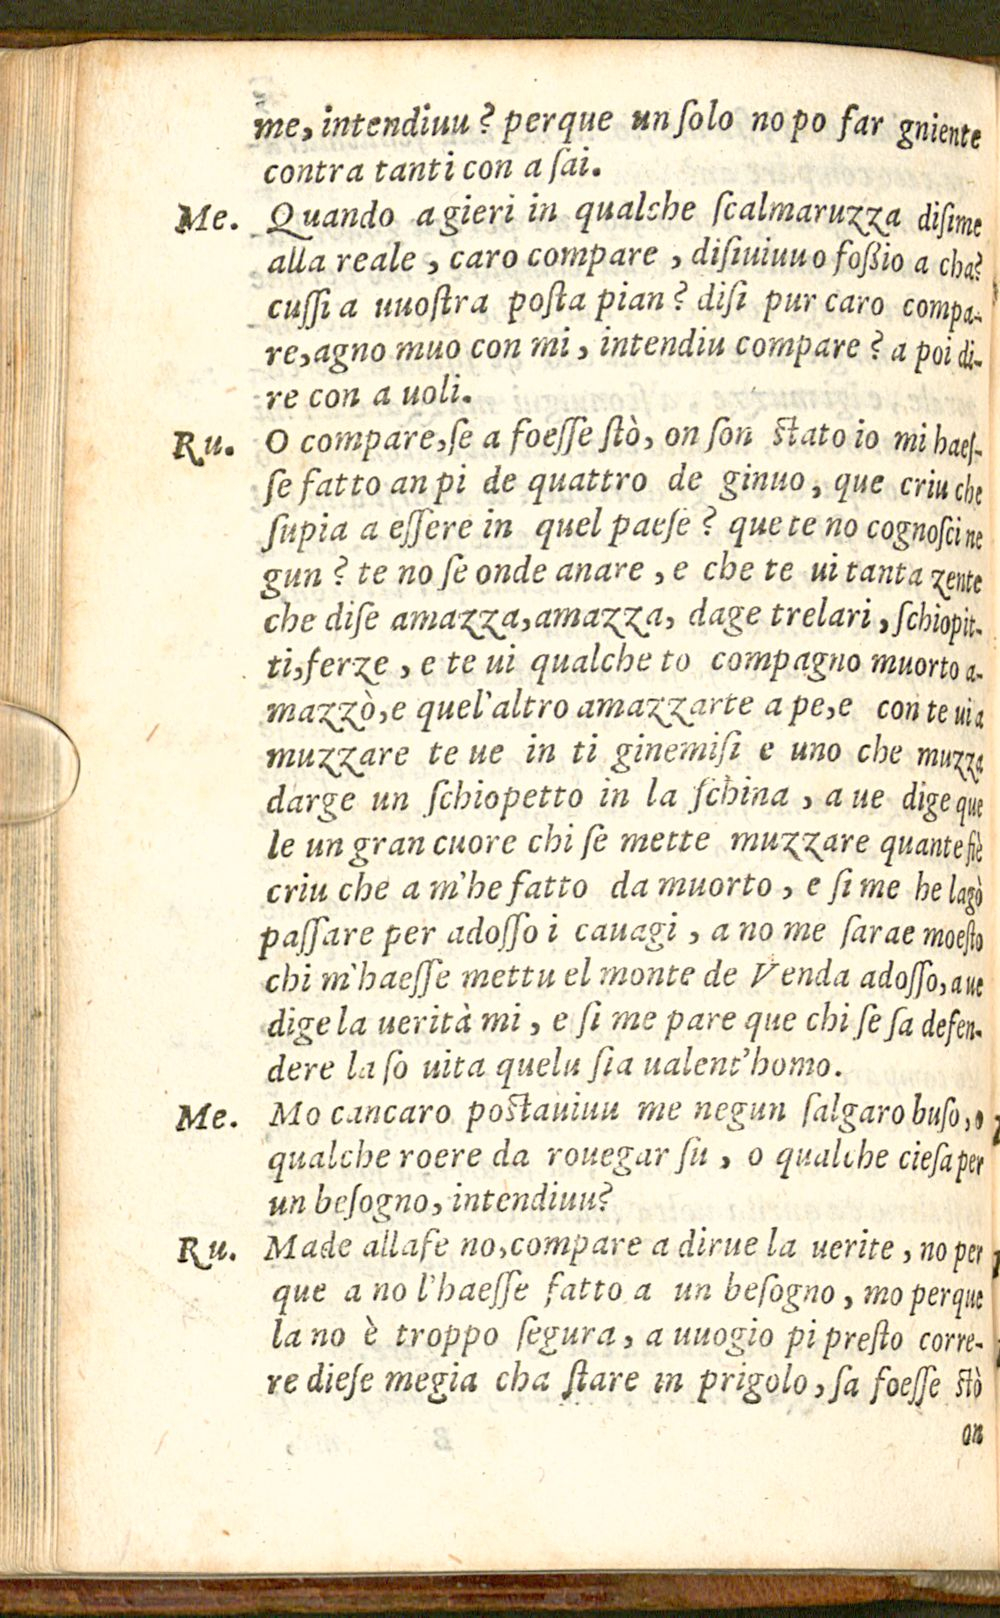 me, intendiuu? perque un ſolo no po far gniente
contra tanti con a ſai.
Me. Quando agieri in qualche ſcalmaruzza diſime
alla reale, caro compare, diſiuiuuo foßio a cha?
cuſſi a uuoſtra poſta pian? diſi pur caro compa-
re, agno muo con mi, intendiu compare? a poi di-
re con a uoli.
Ru. O compare, ſe a foeſſe ſtò, on ſon ſtato io mi haeſ-
ſe fatto an pi de quattro de ginuo, que criu che
ſupia a eſſere in quel paeſe? que te no cognoſci ne
gun? te no ſe onde anare, e che te ui tanta zente
che diſe amazza, amazza, dage trelari, ſchiopit-
ti, ferze, e te ui qualche to compagno muorto a-
mazzò, e quel'altro amazzarte a pe, e con te ui a
muzzare te ue in ti ginemiſi e uno che muzza
darge un ſchiopetto in la ſchina, a ue dige que
le un gran cuore chi ſe mette muzzare quante fiè
criu che a m'he fatto da muorto, e ſi me he lagò
paſſare per adoſſo i cauagi, a no me ſarae moeſto
chi m'haeſſe mettu el monte de Venda adoſſo, a ue
dige la uerità mi, e ſi me pare que chi ſe ſa defen-
dere la ſo uita quelu ſia ualent'homo.
Me. Mo cancaro poſtauiuu me negun ſalgaro buſo, o
qualche roere da rouegar ſu, o qualche cieſa per
un beſogno, intendiuu?
Ru. Made allafe no, compare a dirue la uerite, no per
que a no l'haeſſe fatto a un beſogno, mo perque
la no è troppo ſegura, a uuogio pi preſto corre-
re dieſe megia cha ſtare in prigolo, ſa foeſſe ſtò
on